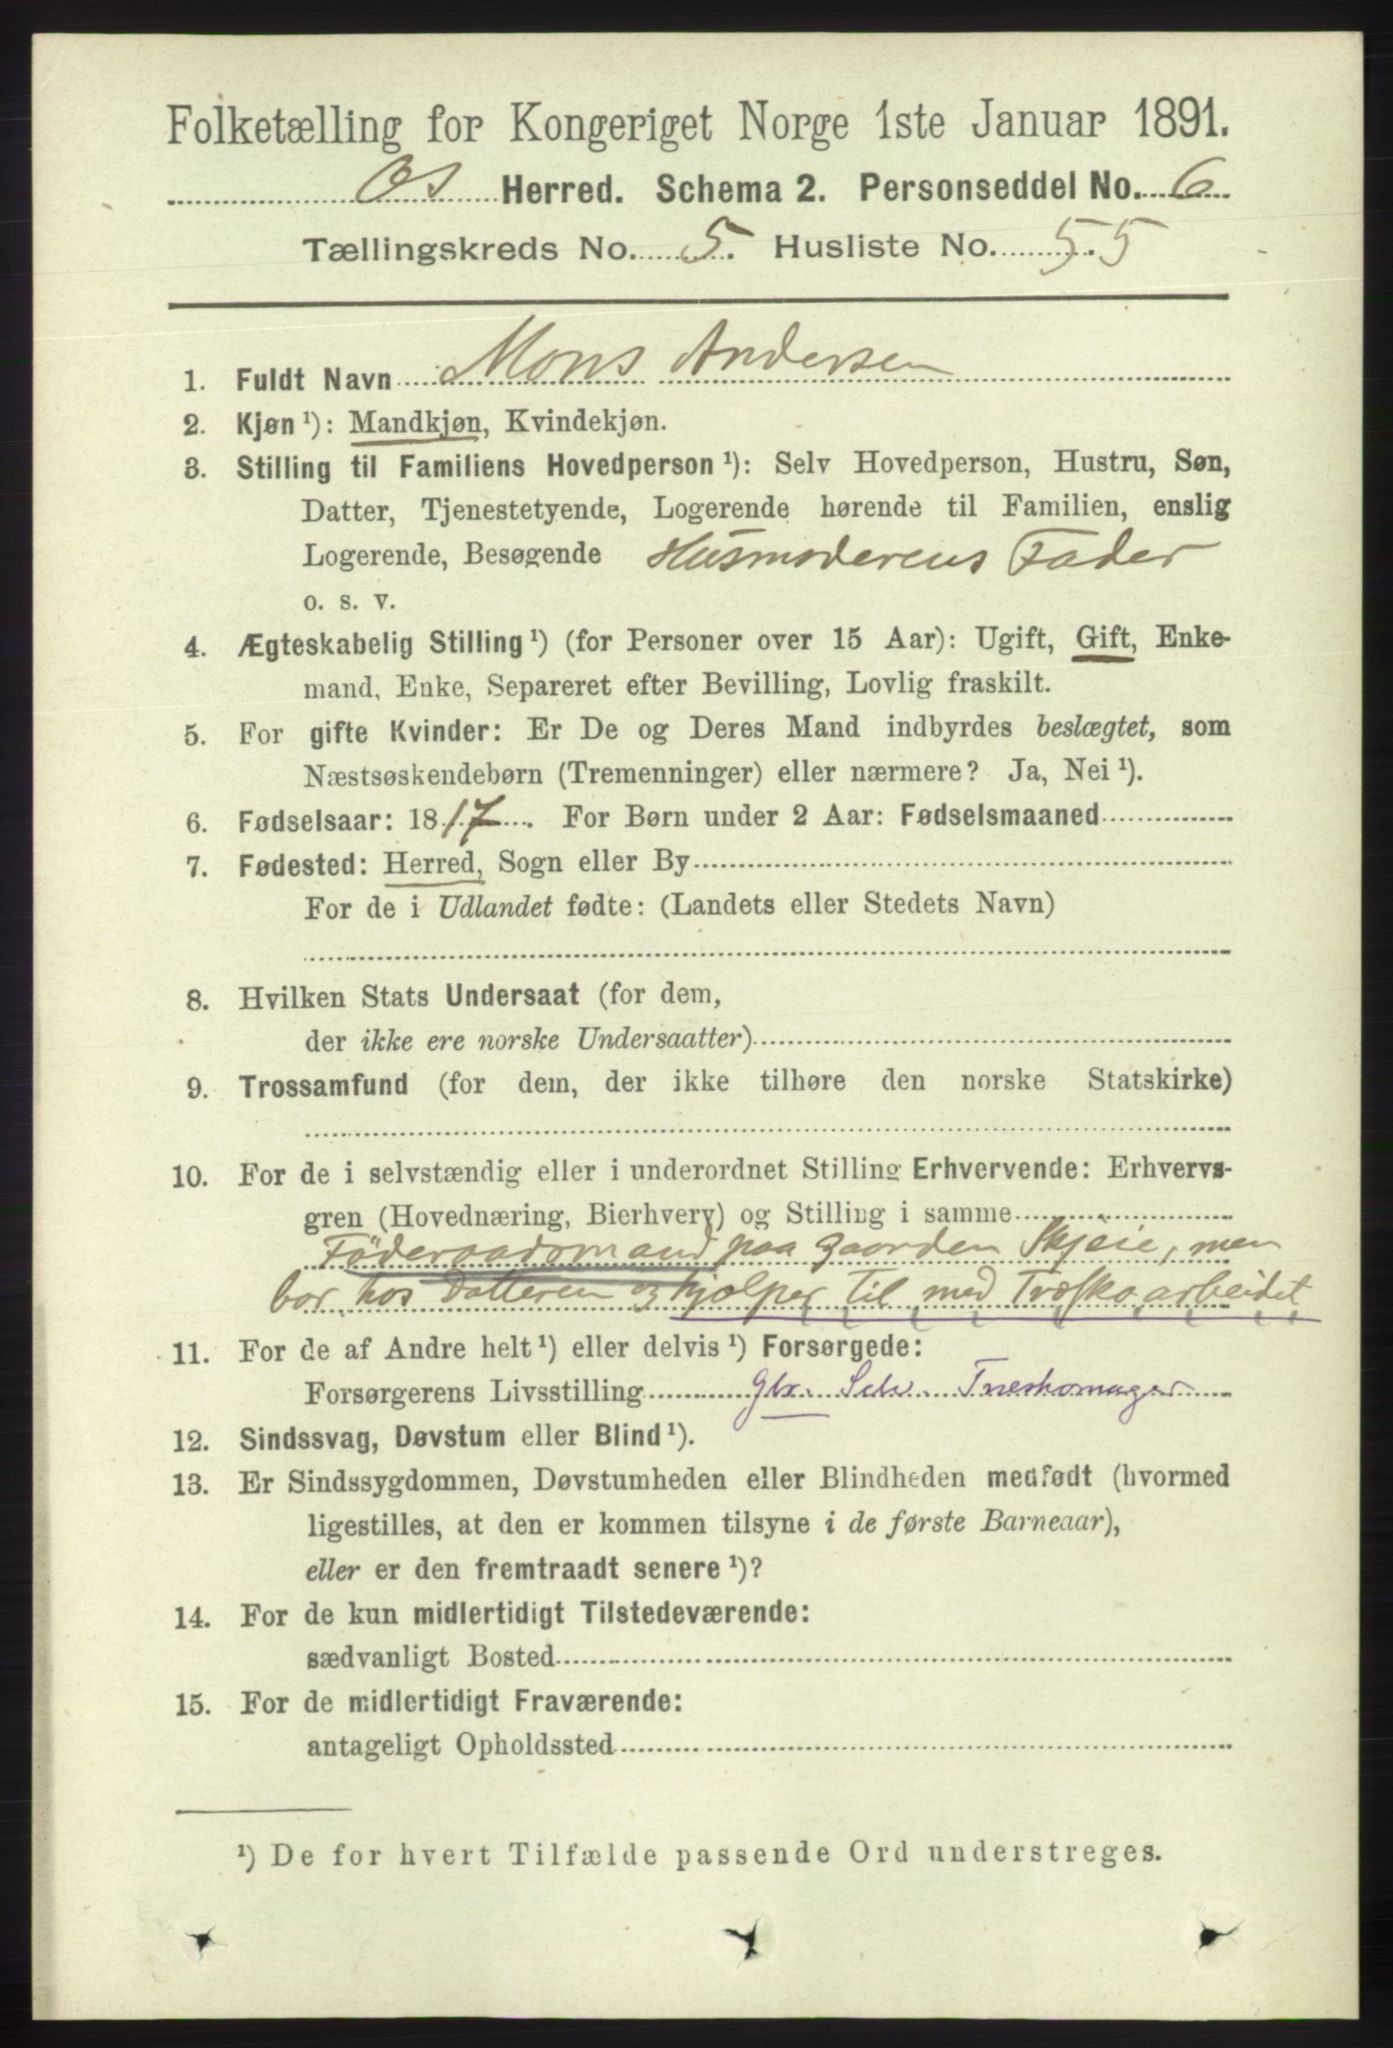 Folketælling for Kongeriget Norge 1ste Januar 1891.
Os Herred. Schema 2. Personseddel No. 6
Tællingskreds No. 5. Husliste No. 55
1. Fuldt Navn Mons Andersen
2. Kjøn ¹): Mandkjøn, Kvindekjøn.
3. Stilling til Familiens Hovedperson ¹): Selv Hovedperson, Hustru, Søn,
Datter, Tjenestetyende, Logerende hørende til Familien, enslig
Logerende, Besøgende Husmoderens Fader
o. s. v.
4. Ægteskabelig Stilling ¹) (for Personer over 15 Aar): Ugift, Gift, Enke-
mand, Enke, Separeret efter Bevilling, Lovlig fraskilt.
5. For gifte Kvinder: Er De og Deres Mand indbyrdes beslægtet, som
Næstsøskendebørn (Tremenninger) eller nærmere? Ja, Nei ¹).
6. Fødselsaar: 1817. For Børn under 2 Aar: Fødselsmaaned
7. Fødested: Herred, Sogn eller By
For de i Udlandet fødte: (Landets eller Stedets Navn)
8. Hvilken Stats Undersaat (for dem,
der ikke ere norske Undersaatter)
9. Trossamfund (for dem, der ikke tilhøre den norske Statskirke)
10. For de i selvstændig eller i underordnet Stilling Erhvervende: Erhvervs-
gren (Hovednæring, Bierhverv) og Stilling i samme
Föderaadsmand paa Gaarden Skjeie, men
bor hos Datteren og hjælper til med Træskoarbeidet
11. For de af Andre helt ¹) eller delvis ¹) Forsørgede:
Forsørgerens Livsstilling Selv. Træskomager
12. Sindssvag, Døvstum eller Blind ¹).
13. Er Sindssygdommen, Døvstumheden eller Blindheden medfødt (hvormed
ligestilles, at den er kommen tilsyne i de første Barneaar),
eller er den fremtraadt senere ¹)?
14. For de kun midlertidigt Tilstedeværende:
sædvanligt Bosted
15. For de midlertidigt Fraværende:
antageligt Opholdssted
¹) De for hvert Tilfælde passende Ord understreges.